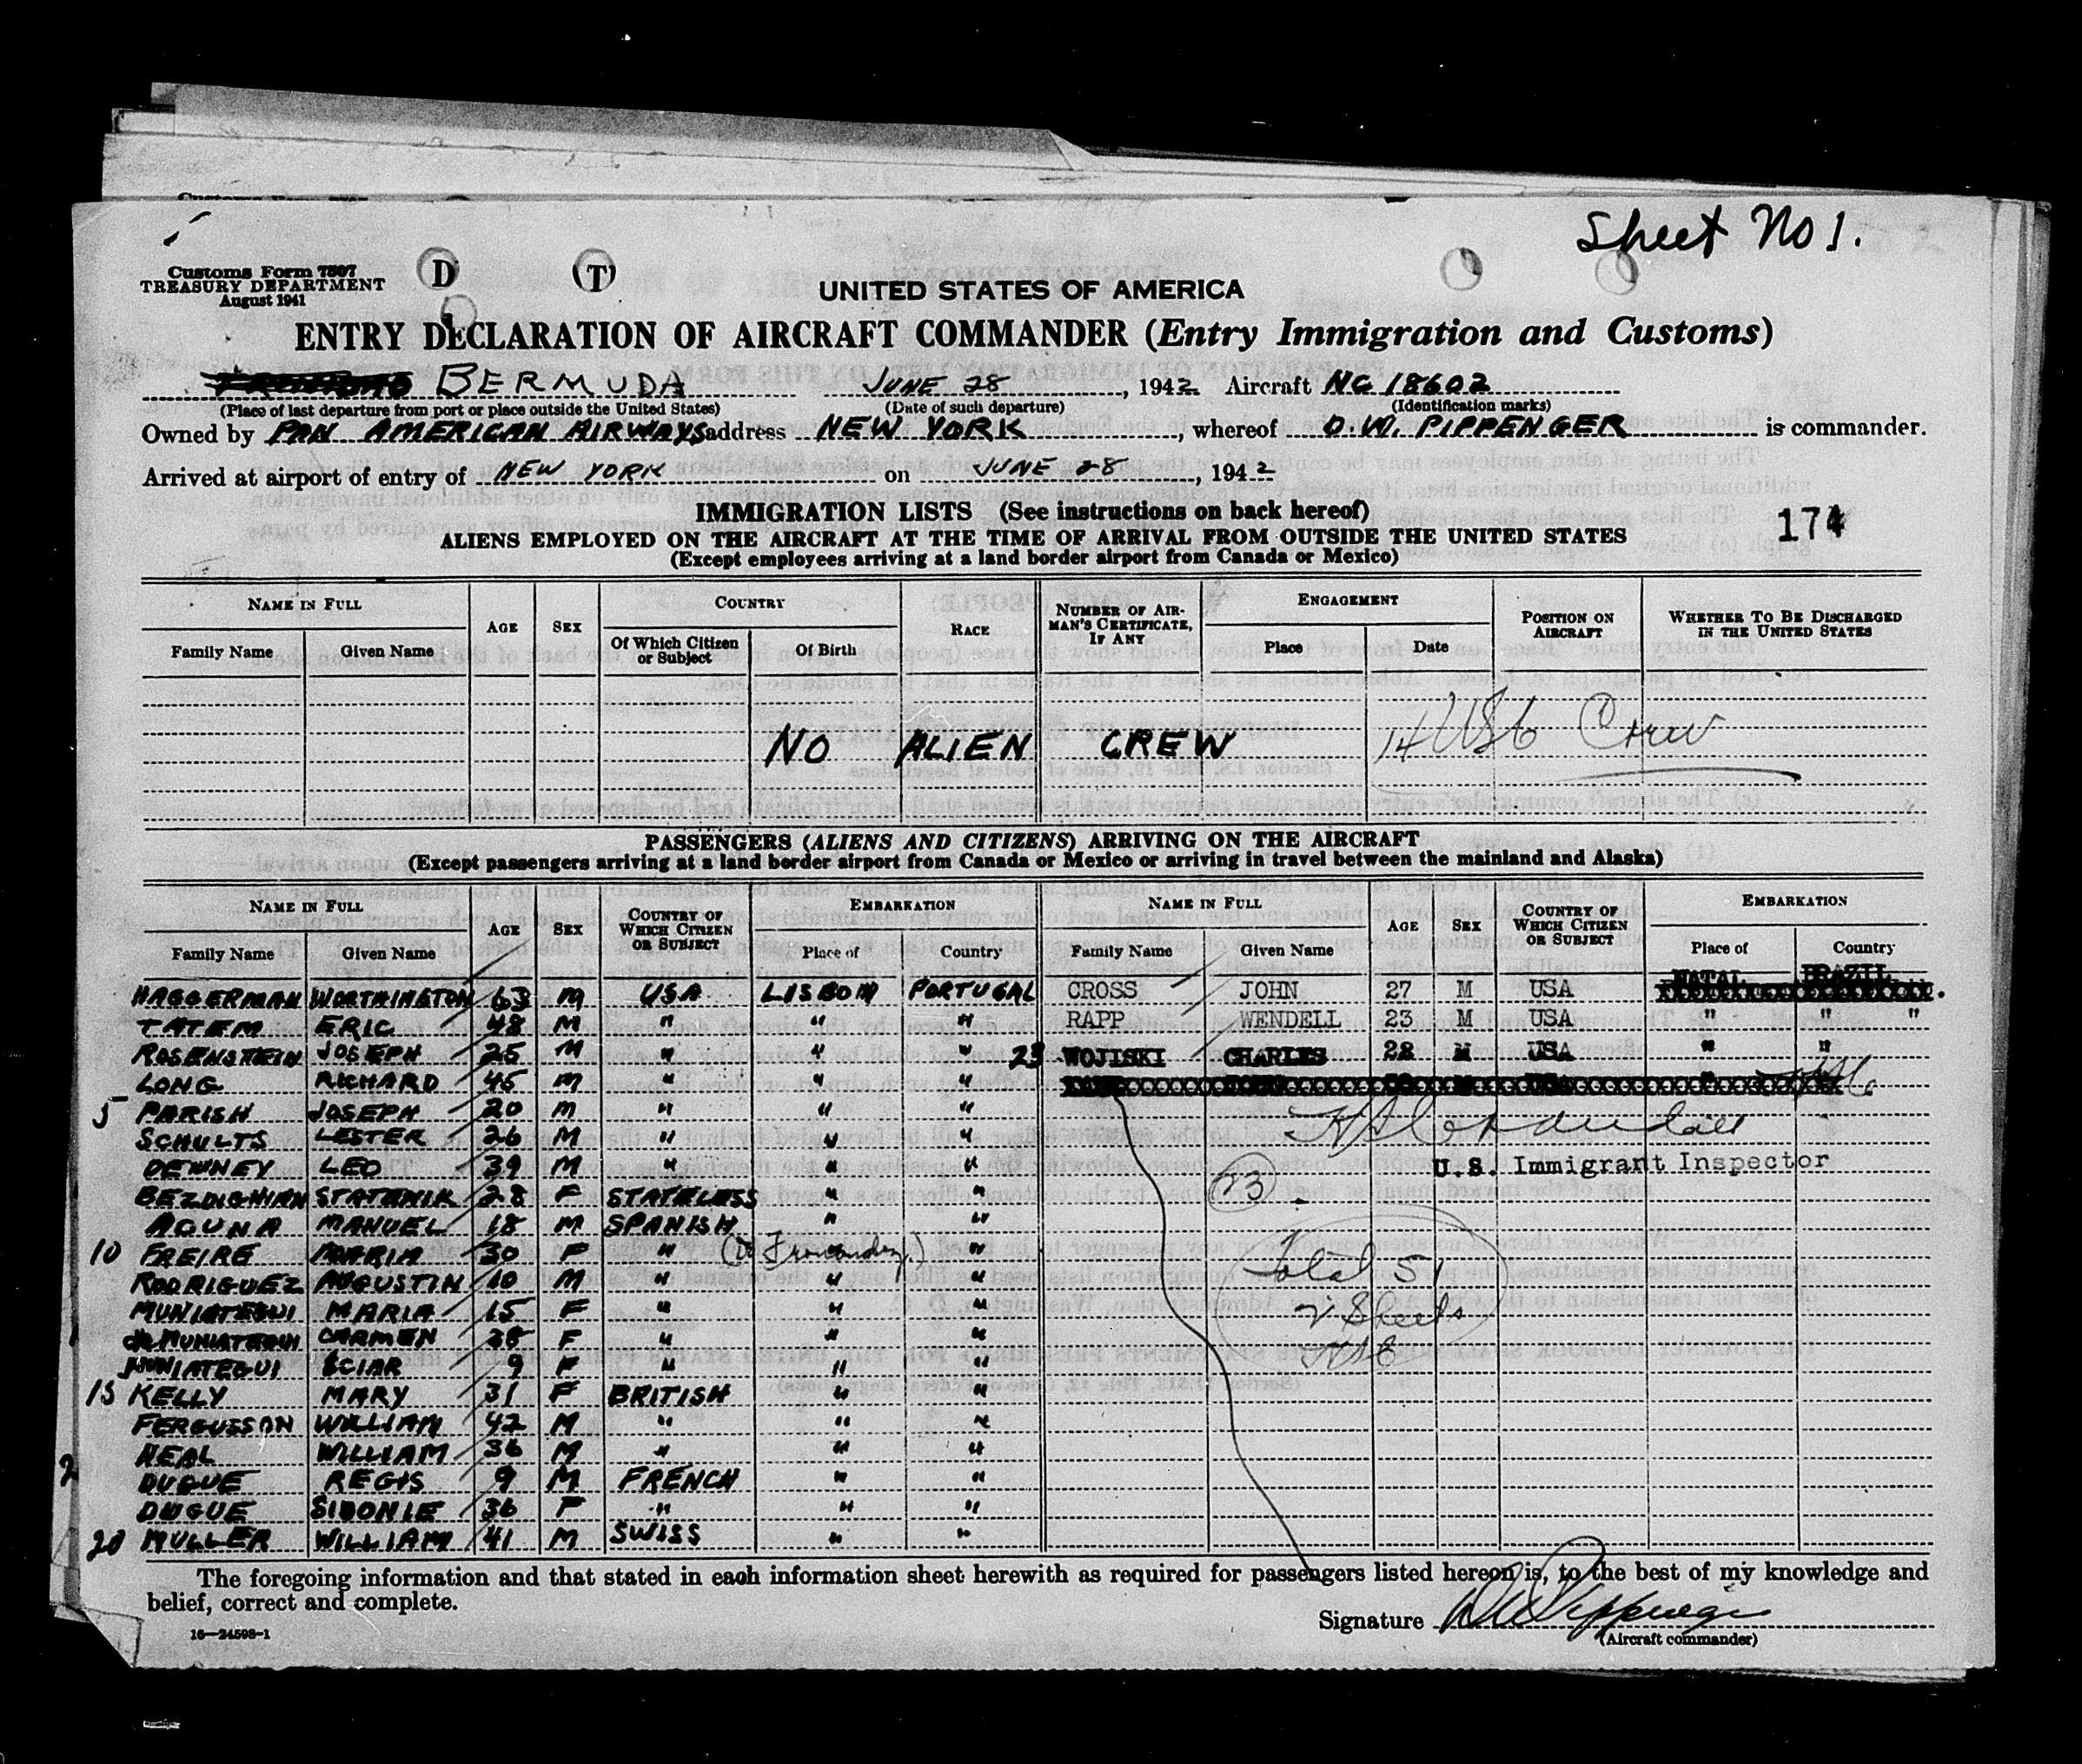 Sheet No 1.
Customs Form 7507
TREASURY DEPARTMENT
August 1941
D T
UNITED STATES OF AMERICA
ENTRY DECLARATION OF AIRCRAFT COMMANDER (Entry Immigration and Customs)
BERMUDA JUNE 28, 1942 Aircraft NC 18602
(Place of last departure from port or place outside the United States) (Date of such departure) (Identification marks)
Owned by PAN AMERICAN AIRWAYS address NEW YORK, whereof O.W. PIPPENGER is commander.
Arrived at airport of entry of NEW YORK on JUNE 28, 1942
IMMIGRATION LISTS (See instructions on back hereof)
174
ALIENS EMPLOYED ON THE AIRCRAFT AT THE TIME OF ARRIVAL FROM OUTSIDE THE UNITED STATES
(Except employees arriving at a land border airport from Canada or Mexico)
NAME IN FULL AGE SEX COUNTRY RACE NUMBER OF AIRMAN'S CERTIFICATE, IF ANY ENGAGEMENT POSITION ON AIRCRAFT WHETHER TO BE DISCHARGED IN THE UNITED STATES
Family Name Given Name Of Which Citizen or Subject Of Birth Place Date
NO ALIEN CREW 14 USC Crew
PASSENGERS (ALIENS AND CITIZENS) ARRIVING ON THE AIRCRAFT
(Except passengers arriving at a land border airport from Canada or Mexico or arriving in travel between the mainland and Alaska)
NAME IN FULL AGE SEX COUNTRY OF WHICH CITIZEN OR SUBJECT EMBARKATION NAME IN FULL AGE SEX COUNTRY OF WHICH CITIZEN OR SUBJECT EMBARKATION
Family Name Given Name Place of Country Family Name Given Name Place of Country
HAGGERMAN WORTHINGTON 63 M USA LISBON PORTUGAL CROSS JOHN 27 M USA NATAL BRAZIL
TATEM ERIC 48 M " " " RAPP WENDELL 23 M USA " " "
ROSENSTEIN JOSEPH 25 M " " " 23 WOJISKI CHARLES 28 M USA " "
LONG RICHARD 45 M " " "
5 PARISH JOSEPH 20 M " " "
SCHULTS LESTER 26 M " " "
DENNEY LEO 39 M " " " U.S. Immigrant Inspector
BEZDIGHIAN STATENIK 28 F STATELESS " " 23
ACUNA MANUEL 18 M SPANISH " "
10 FREIRE MARIA 30 F " (De Fronandez) "
RODRIGUEZ AUGUSTIN 10 M " " " Total 51
MUNIATEGUI MARIA 15 F " " " 2 Sheets
de MUNIATEGUI CARMEN 38 F " " "
MUNIATEGUI ICIAR 9 F " " "
15 KELLY MARY 31 F BRITISH " "
FERGUSSON WILLIAM 42 M " " "
HEAL WILLIAM 36 M " " "
2 DUGUE REGIS 9 M FRENCH " "
DUGUE SIDONIE 36 F " " "
20 MULLER WILLIAM 41 M SWISS " "
The foregoing information and that stated in each information sheet herewith as required for passengers listed hereon is, to the best of my knowledge and
belief, correct and complete.
Signature OW Pippenger
16—24598-1 (Aircraft commander)